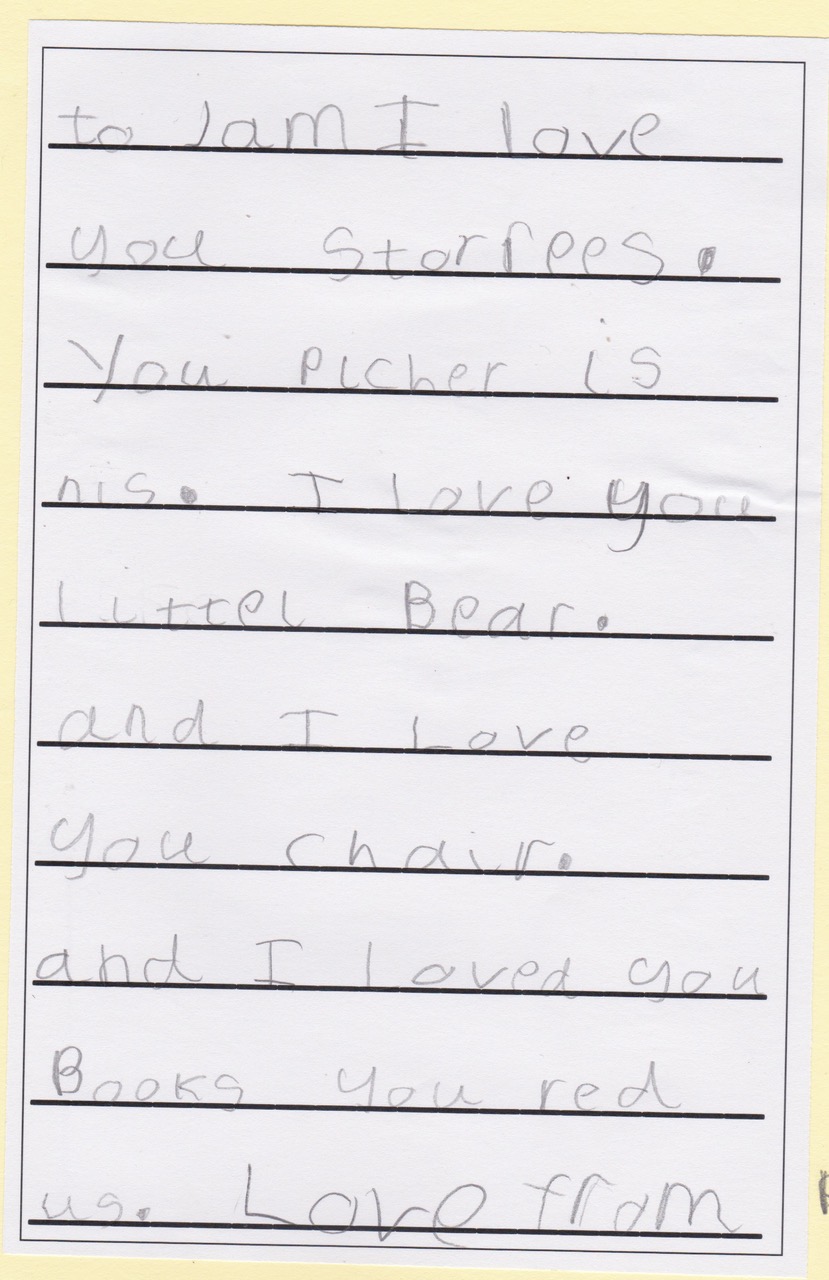 to Jam I love
you storrees.
You picher is
nis. I love you
littel Bear.
and I Love
you chair.
and I loved you
Books you red
us. Love from